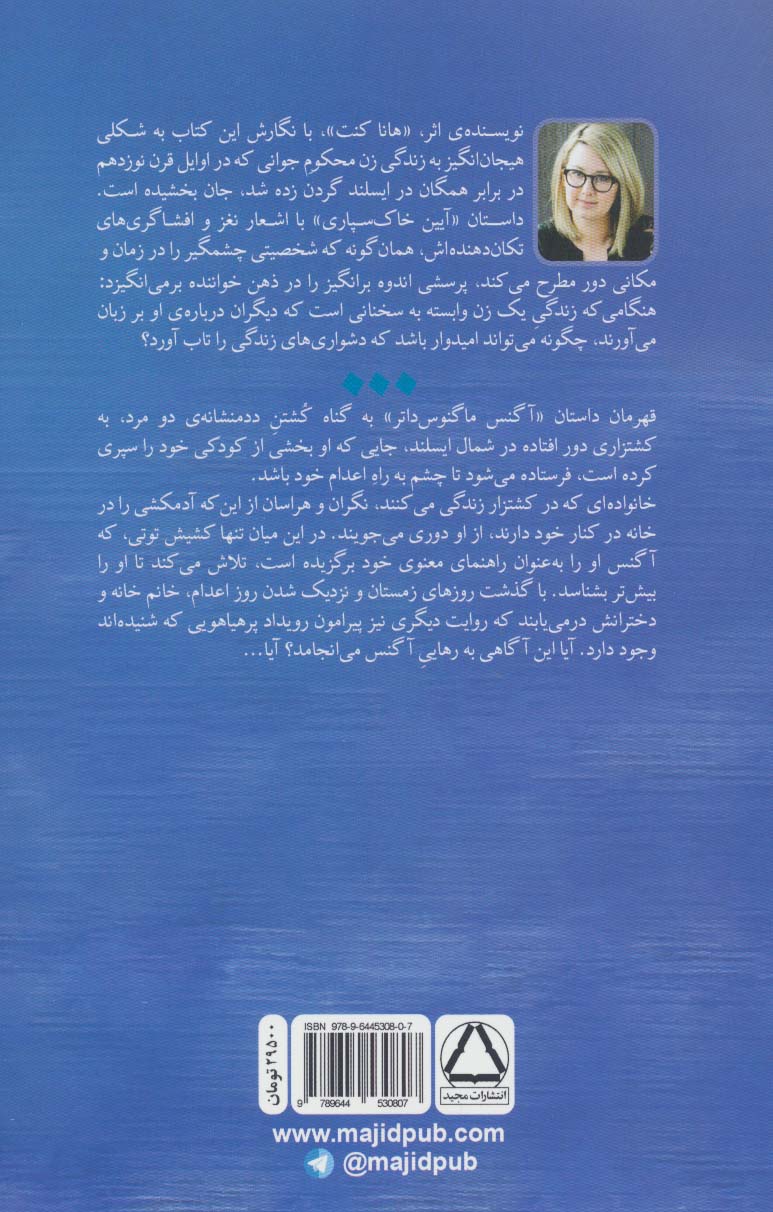 نویسنده‌ی اثر، «هانا کنت»، با نگارش این کتاب به شکلی
هیجان‌انگیز به زندگی زن محکومِ جوانی که در اوایل قرن نوزدهم
در برابر همگان در ایسلند گردن زده شد، جان بخشیده است.
داستان «آیین خاک‌سپاری» با اشعار نغز و افشاگری‌های
تکان‌دهنده‌اش، همان‌گونه که شخصیتی چشمگیر را در زمان و
مکانی دور مطرح می‌کند، پرسشی اندوه برانگیز را در ذهن خواننده برمی‌انگیزد:
هنگامی‌که زندگیِ یک زن وابسته به سخنانی است که دیگران درباره‌ی او بر زبان
می‌آورند، چگونه می‌تواند امیدوار باشد که دشواری‌های زندگی را تاب آورد؟
قهرمان داستان «آگنس ماگنوس‌داتر» به گناه کُشتنِ ددمنشانه‌ی دو مرد، به
کشتزاری دور افتاده در شمال ایسلند، جایی که او بخشی از کودکی خود را سپری
کرده است، فرستاده می‌شود تا چشم به راهِ اعدام خود باشد.
خانواده‌ای که در کشتزار زندگی می‌کنند، نگران و هراسان از این‌که آدمکشی را در
خانه در کنار خود دارند، از او دوری می‌جویند. در این میان تنها کشیش توتی، که
آگنس او را به‌عنوان راهنمای معنوی خود برگزیده است، تلاش می‌کند تا او را
بیش‌تر بشناسد. با گذشت روزهای زمستان و نزدیک شدن روز اعدام، خانم خانه و
دخترانش درمی‌یابند که روایت دیگری نیز پیرامون رویداد پرهیاهویی که شنیده‌اند
وجود دارد. آیا این آگاهی به رهاییِ آگنس می‌انجامد؟ آیا...
انتشارات مجید
ISBN 978-9-6445308-0-7
9 789644 530807
۲۹۵۰۰ تومان
www.majidpub.com
@majidpub